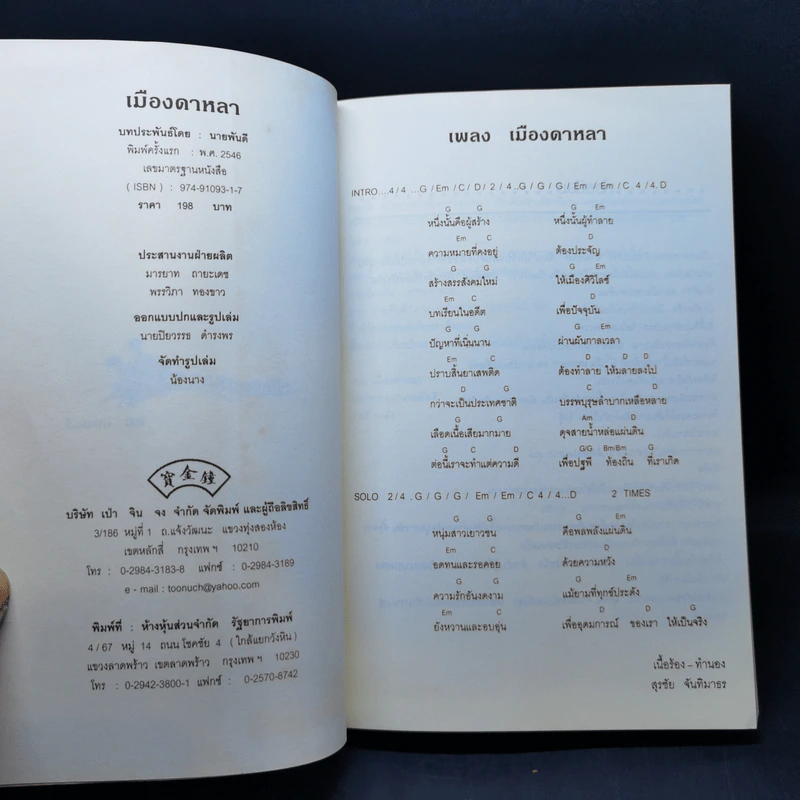 เมืองดาหลา
บทประพันธ์โดย : นายพันดี
พิมพ์ครั้งแรก : พ.ศ. 2546
เลขมาตรฐานหนังสือ
( ISBN ) : 974-91093-1-7
ราคา 198 บาท
ประสานงานฝ่ายผลิต
มารยาท ถายะเดช
พรรวิภา ทองขาว
ออกแบบปกและรูปเล่ม
นายปิยวรรธ ดำรงพร
จัดทำรูปเล่ม
น้องนาง
寶金鐘
บริษัท เป่า จิน จง จำกัด จัดพิมพ์ และผู้ถือลิขสิทธิ์
3/186 หมู่ที่ 1 ถ.แจ้งวัฒนะ แขวงทุ่งสองห้อง
เขตหลักสี่ กรุงเทพ ฯ 10210
โทร : 0-2984-3183-8 แฟกซ์ : 0-2984-3189
e - mail : toonuch@yahoo.com
พิมพ์ที่ : ห้างหุ้นส่วนจำกัด รัฐยาการพิมพ์
4 / 67 หมู่ 14 ถนน โชคชัย 4 ( ใกล้แยกวังหิน )
แขวงลาดพร้าว เขตลาดพร้าว กรุงเทพ ฯ 10230
โทร : 0-2942-3800-1 แฟกซ์ : 0-2570-8742
เพลง เมืองดาหลา
INTRO....4 / 4 ...G / Em / C / D / 2 / 4 ..G / G / G / Em / Em / C 4 / 4. D
G G G Em
หนึ่งนั้นคือผู้สร้าง หนึ่งนั้นผู้ทำลาย
Em C D
ความหมายที่คงอยู่ ต้องประจัญ
G G G Em
สร้างสรรสังคมใหม่ ให้เมืองศิวิไลซ์
Em C D
บทเรียนในอดีต เพื่อปัจจุบัน
G G G Em
ปัญหาที่เนิ่นนาน ผ่านผันกาลเวลา
Em C D D D
ปราบสิ้นยาเสพติด ต้องทำลาย ให้มลายลงไป
D G C D
กว่าจะเป็นประเทศชาติ บรรพบุรุษลำบากเหลือหลาย
G G Am D
เลือดเนื้อเสียมากมาย ดุจสายน้ำหล่อแผ่นดิน
G C D G/G Bm/Bm G
ต่อนี้เราจะทำแต่ความดี เพื่อปฐพี ท้องถิ่น ที่เราเกิด
SOLO 2 / 4 . G / G / G / Em / Em / C 4 / 4...D 2 TIMES
G G G Em
หนุ่มสาวเยาวชน คือพลพลังแผ่นดิน
Em C D
อดทนและรอคอย ด้วยความหวัง
G G G Em
ความรักอันงดงาม แม้ยามที่ทุกข์ประดัง
Em C D D G
ยังหวานและอบอุ่น เพื่ออุดมการณ์ ของเรา ให้เป็นจริง
เนื้อร้อง – ทำนอง
สุรชัย จันทิมาธร